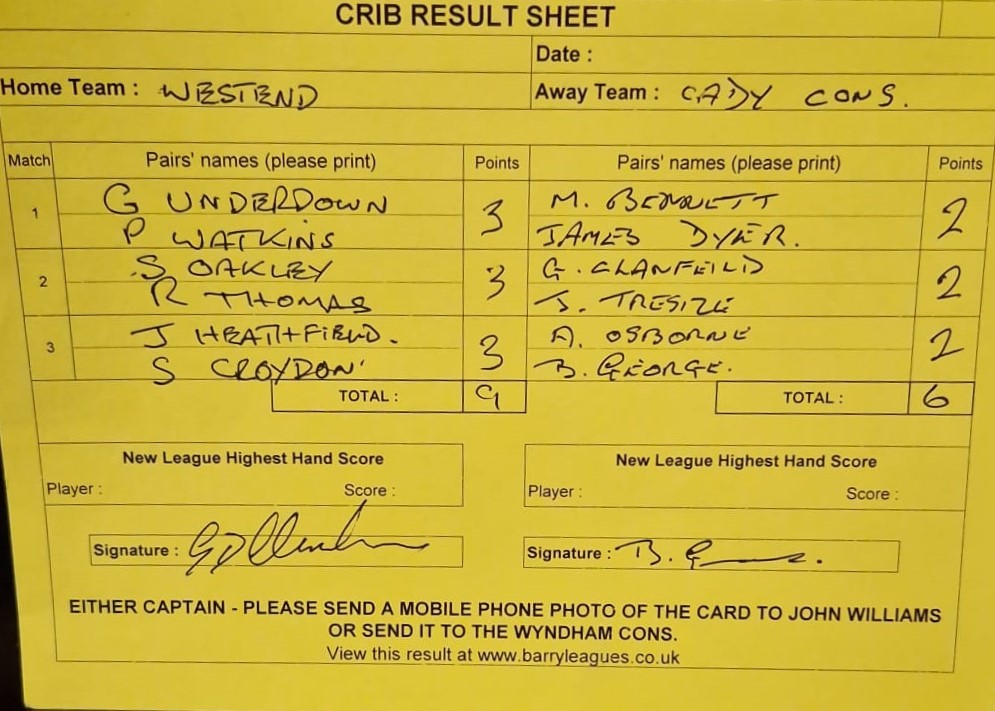 CRIB RESULT SHEET
Date :
Home Team : WESTEND Away Team : CADY CONS.
Match Pairs' names (please print) Points Pairs' names (please print) Points
G UNDERDOWN M. BENNETT
1 3 2
P WATKINS JAMES DYER.
S OAKLEY G. CLANFEILD
2 3 2
R THOMAS J. TRESIZE
J HEATHFIELD. A. OSBORNE
3 3 2
S CROYDON B. GEORGE.
TOTAL : 9 TOTAL : 6
New League Highest Hand Score New League Highest Hand Score
Player : Score : Player : Score :
Signature : Signature : B.
EITHER CAPTAIN - PLEASE SEND A MOBILE PHONE PHOTO OF THE CARD TO JOHN WILLIAMS
OR SEND IT TO THE WYNDHAM CONS.
View this result at www.barryleagues.co.uk